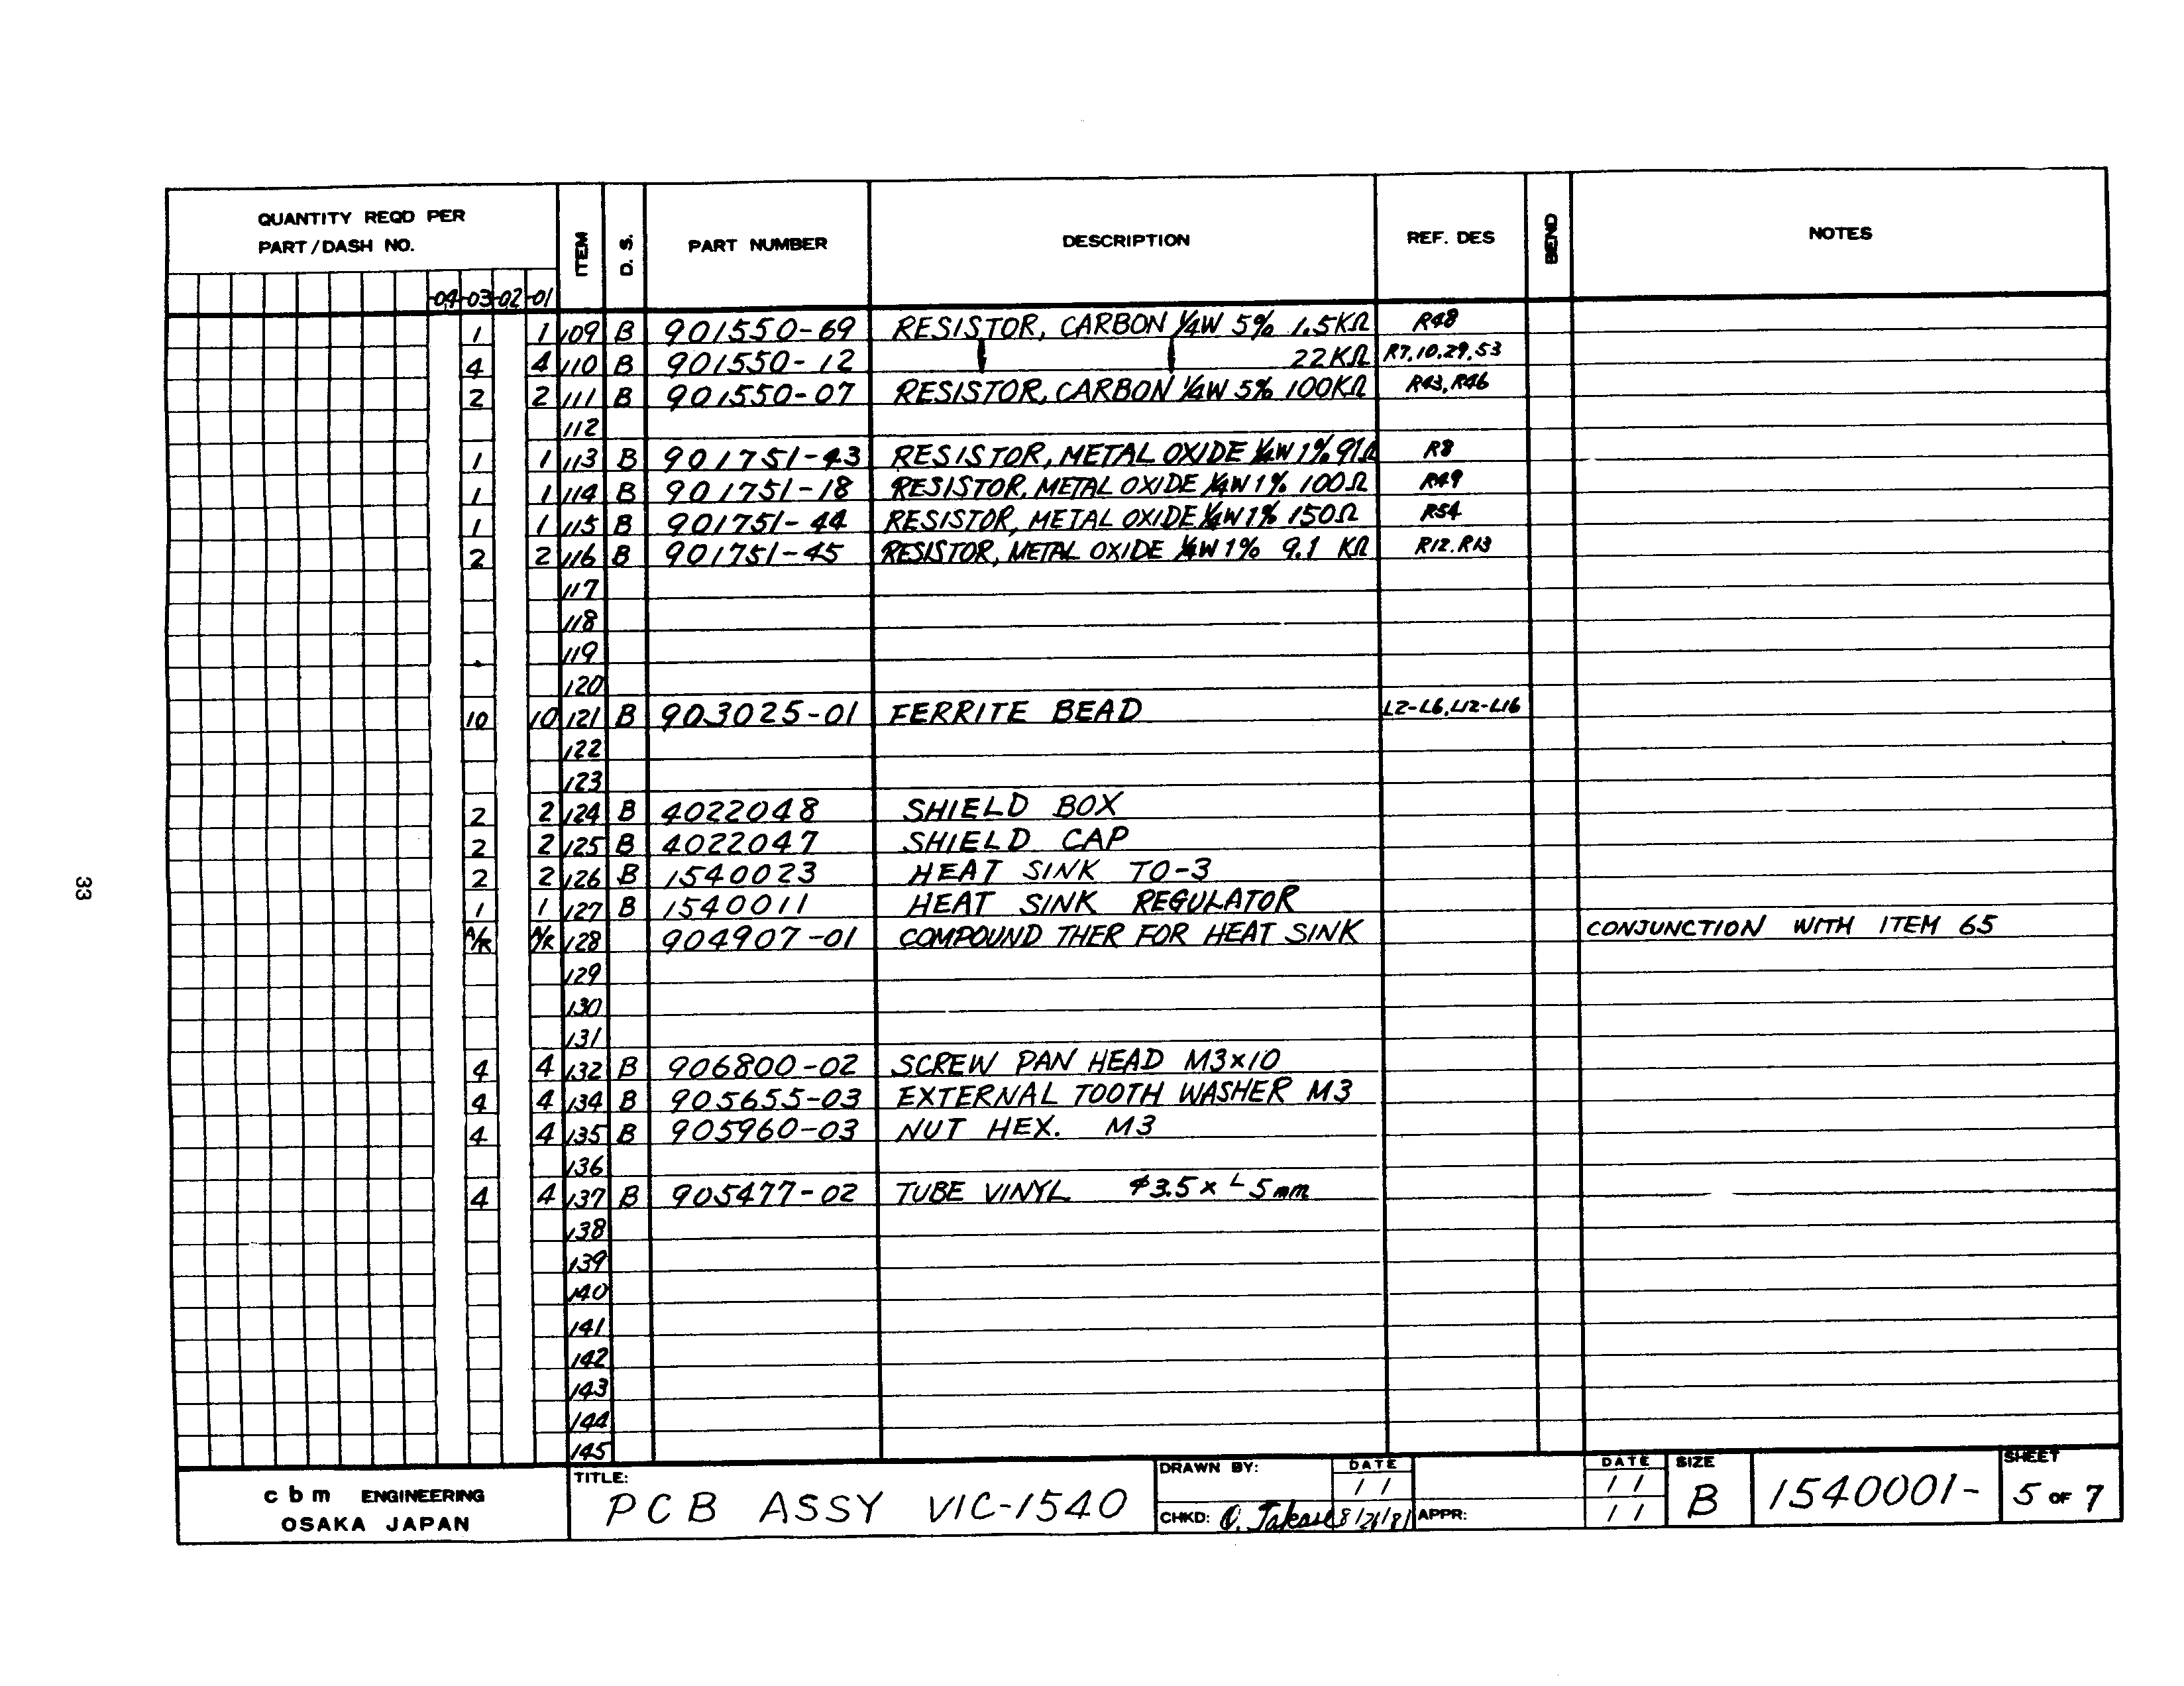 QUANTITY REQD PER
PART/DASH NO.
-04 -03 -02 -01
ITEM
D. S.
PART NUMBER
DESCRIPTION
REF. DES
BEND
NOTES
1 1 109 B 901550-69 RESISTOR, CARBON ¼W 5% 1.5KΩ R48
4 4 110 B 901550-12 22KΩ R7,10,29,53
2 2 111 B 901550-07 RESISTOR, CARBON ¼W 5% 100KΩ R43,R46
112
1 1 113 B 901751-43 RESISTOR, METAL OXIDE ¼W 1% 91Ω R8
1 1 114 B 901751-18 RESISTOR, METAL OXIDE ¼W 1% 100Ω R49
1 1 115 B 901751-44 RESISTOR, METAL OXIDE ¼W 1% 150Ω R54
2 2 116 B 901751-45 RESISTOR, METAL OXIDE ¼W 1% 9.1 KΩ R12.R13
117
118
119
120
10 10 121 B 903025-01 FERRITE BEAD L2-L6,L12-L16
122
123
2 2 124 B 4022048 SHIELD BOX
2 2 125 B 4022047 SHIELD CAP
2 2 126 B 1540023 HEAT SINK TO-3
1 1 127 B 1540011 HEAT SINK REGULATOR
A/R A/R 128 904907-01 COMPOUND THER FOR HEAT SINK CONJUNCTION WITH ITEM 65
129
130
131
4 4 132 B 906800-02 SCREW PAN HEAD M3x10
4 4 134 B 905655-03 EXTERNAL TOOTH WASHER M3
4 4 135 B 905960-03 NUT HEX. M3
136
4 4 137 B 905477-02 TUBE VINYL φ3.5 x L5mm
138
139
140
141
142
143
144
145
cbm ENGINEERING
OSAKA JAPAN
TITLE:
PCB ASSY VIC-1540
DRAWN BY:
DATE
/ /
CHKD: O. Takase 8/26/81
APPR:
DATE
/ /
/ /
SIZE
B
1540001-
SHEET
5 OF 7
33